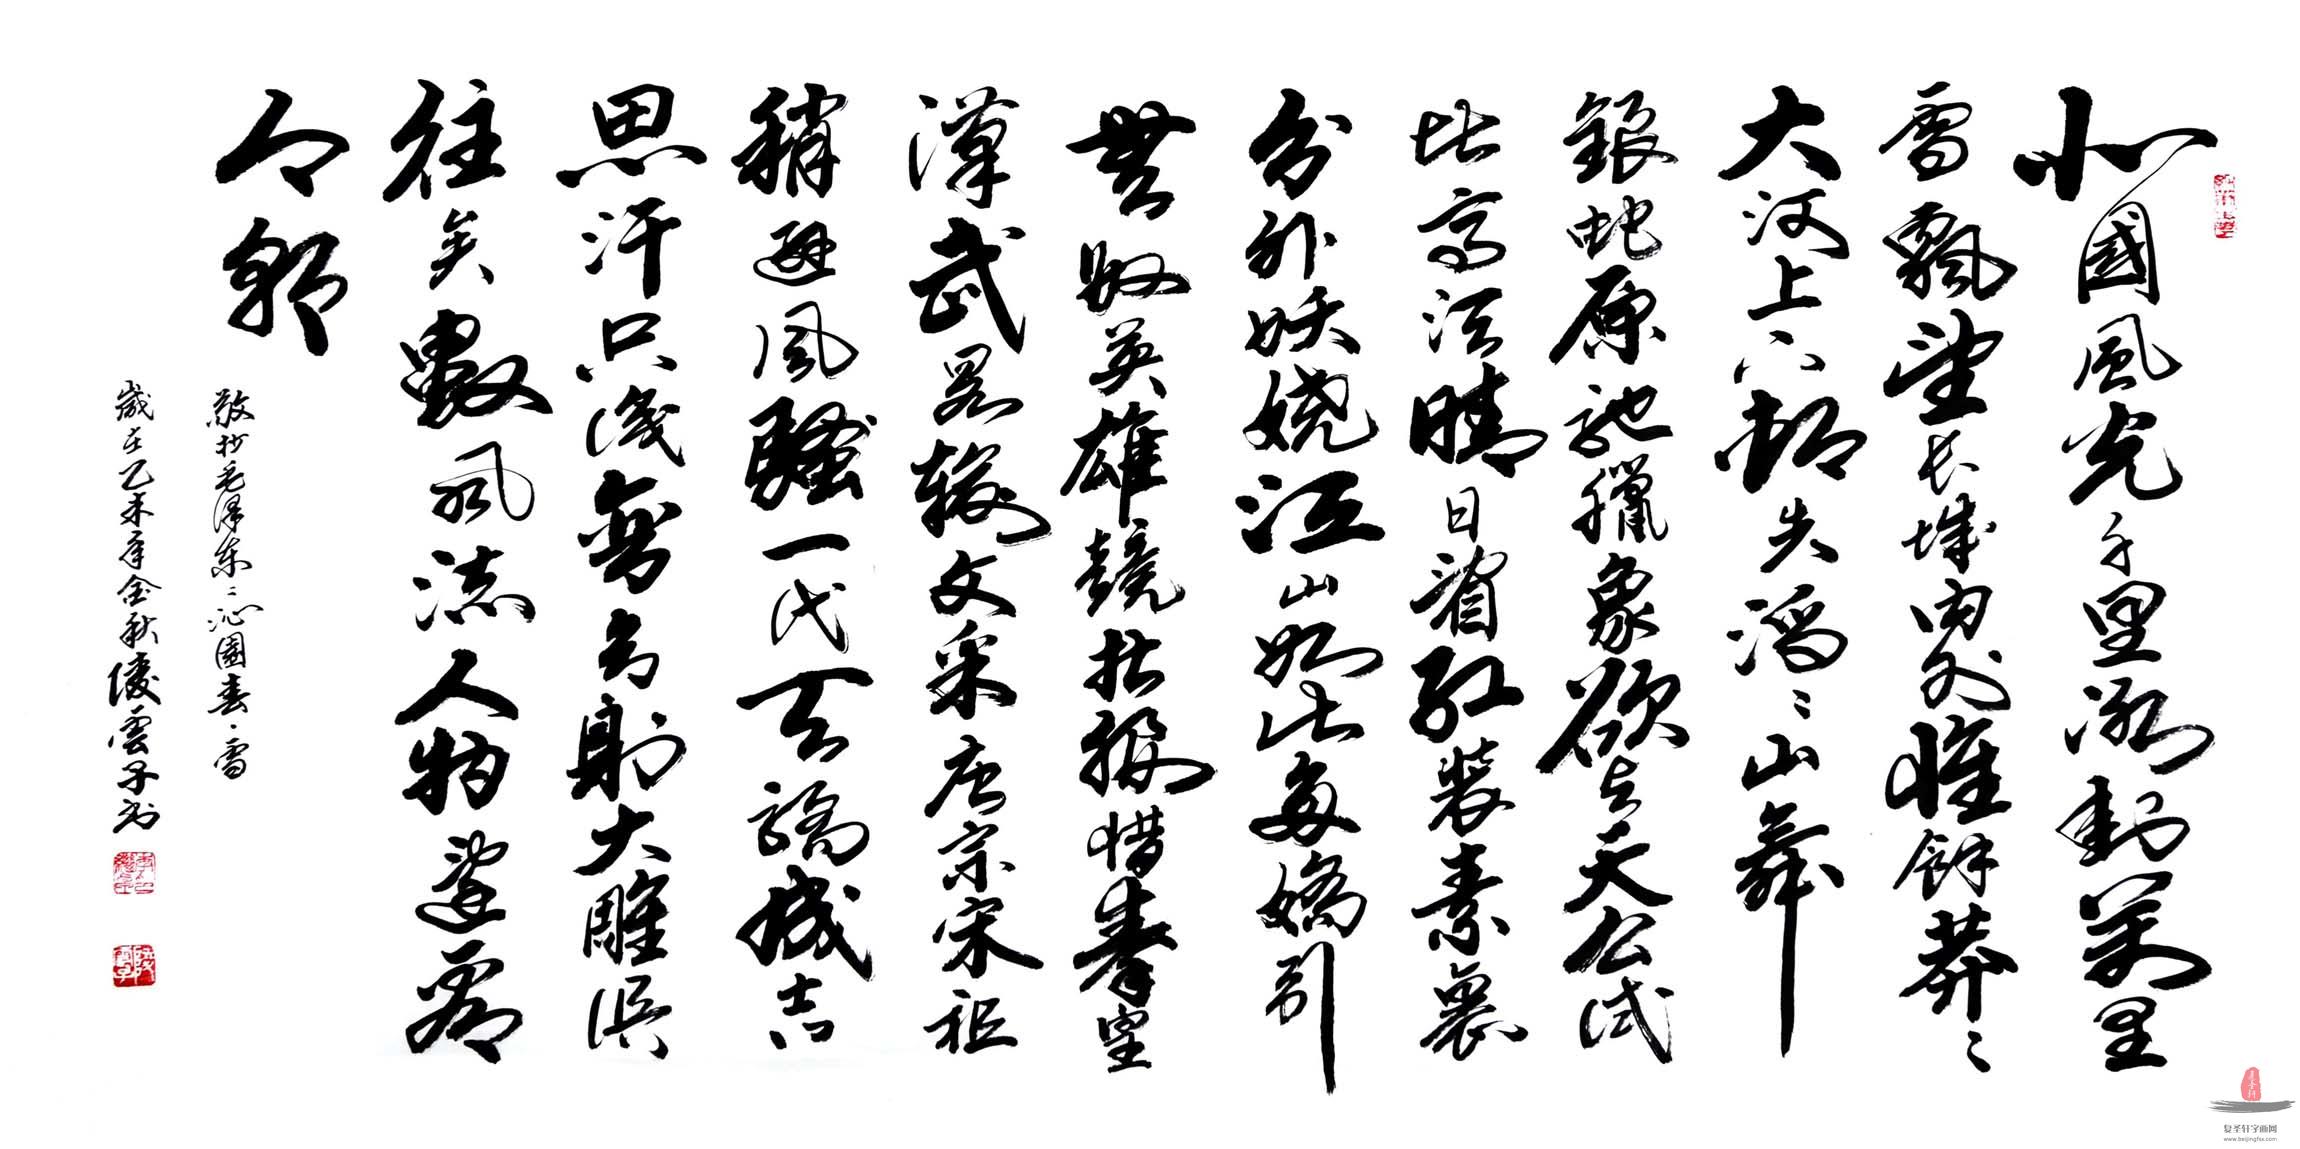 北國風光千里冰封萬里
雪飄望長城内外惟餘莽〻
大河上下頓失滔〻山舞
銀蛇原馳臘象欲与天公試
比高須晴日看紅裝素裹
分外妖嬈江山如此多嬌引
無數英雄競折腰惜秦皇
漢武略輸文采唐宗宋祖
稍遜風騷一代天驕成吉
思汗只識彎弓射大雕俱
往矣數風流人物還看
今朝
敬抄毛澤東〻沁園春、雪
歲在乙未年金秋陵雲子书
复圣轩字画网
www.beijingfsx.com